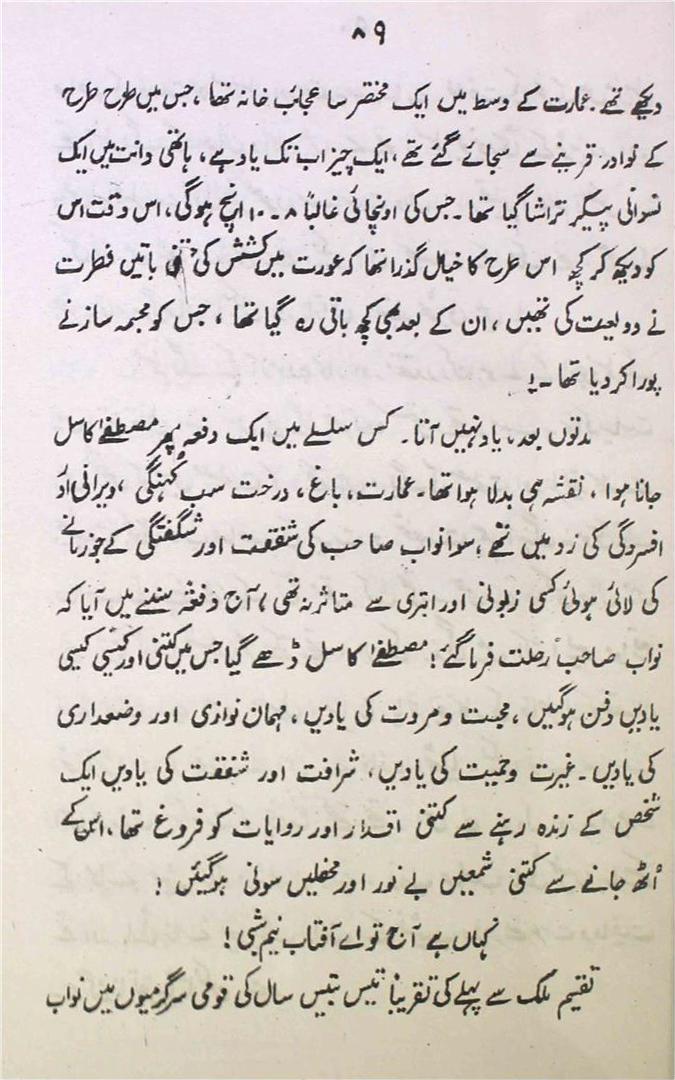 ۸۹
دیکھے تھے۔ عمارت کے وسط میں ایک مختصر سا عجائب خانہ تھا، جس میں طرح طرح
کے نوادر قرینے سے سجائے گئے تھے، ایک چیز اب تک یاد ہے، ہاتھی دانت میں ایک
نسوانی پیکر تراشا گیا تھا۔ جس کی اونچائی غالباً ۸۔۱۰ انچ ہوگی، اس وقت اس
کو دیکھ کر کچھ اس طرح کا خیال گذرا تھا کہ عورت میں کشش کی جتنی باتیں فطرت
نے ودیعت کی تھیں، ان کے بعد بھی کچھ باقی رہ گیا تھا، جس کو مجسمہ ساز نے
پورا کر دیا تھا۔!
مدتوں بعد، یاد نہیں آتا۔ کس سلسلے میں ایک دفعہ پھر مصطفےٰ کاسل
جانا ہوا، نقشہ ہی بدلا ہوا تھا۔ عمارت، باغ، درخت سب کہنگی، ویرانی اور
افسردگی کی زد میں تھے، سوا نواب صاحب کی شفقت اور شگفتگی کے جو زمانے
کی لائی ہوئی کسی زبونی اور ابتری سے متاثر نہ تھی، آج دفعتہً سننے میں آیا کہ
نواب صاحب رحلت فرما گئے! مصطفےٰ کاسل ڈھے گیا جس میں کتنی اور کیسی کیسی
یادیں دفن ہوگئیں، محبت و مروت کی یادیں، مہمان نوازی اور وضعداری
کی یادیں۔ غیرت و حمیت کی یادیں، شرافت اور شفقت کی یادیں ایک
شخص کے زندہ رہنے سے کتنی اقدار اور روایات کو فروغ تھا، اس کے
اُٹھ جانے سے کتنی شمعیں بے نور اور محفلیں سونی ہوگئیں!
کہاں ہے آج تو اے آفتاب نیم شبی!
تقسیم ملک سے پہلے کی تقریباً تیس بتیس سال کی قومی سرگرمیوں میں نواب